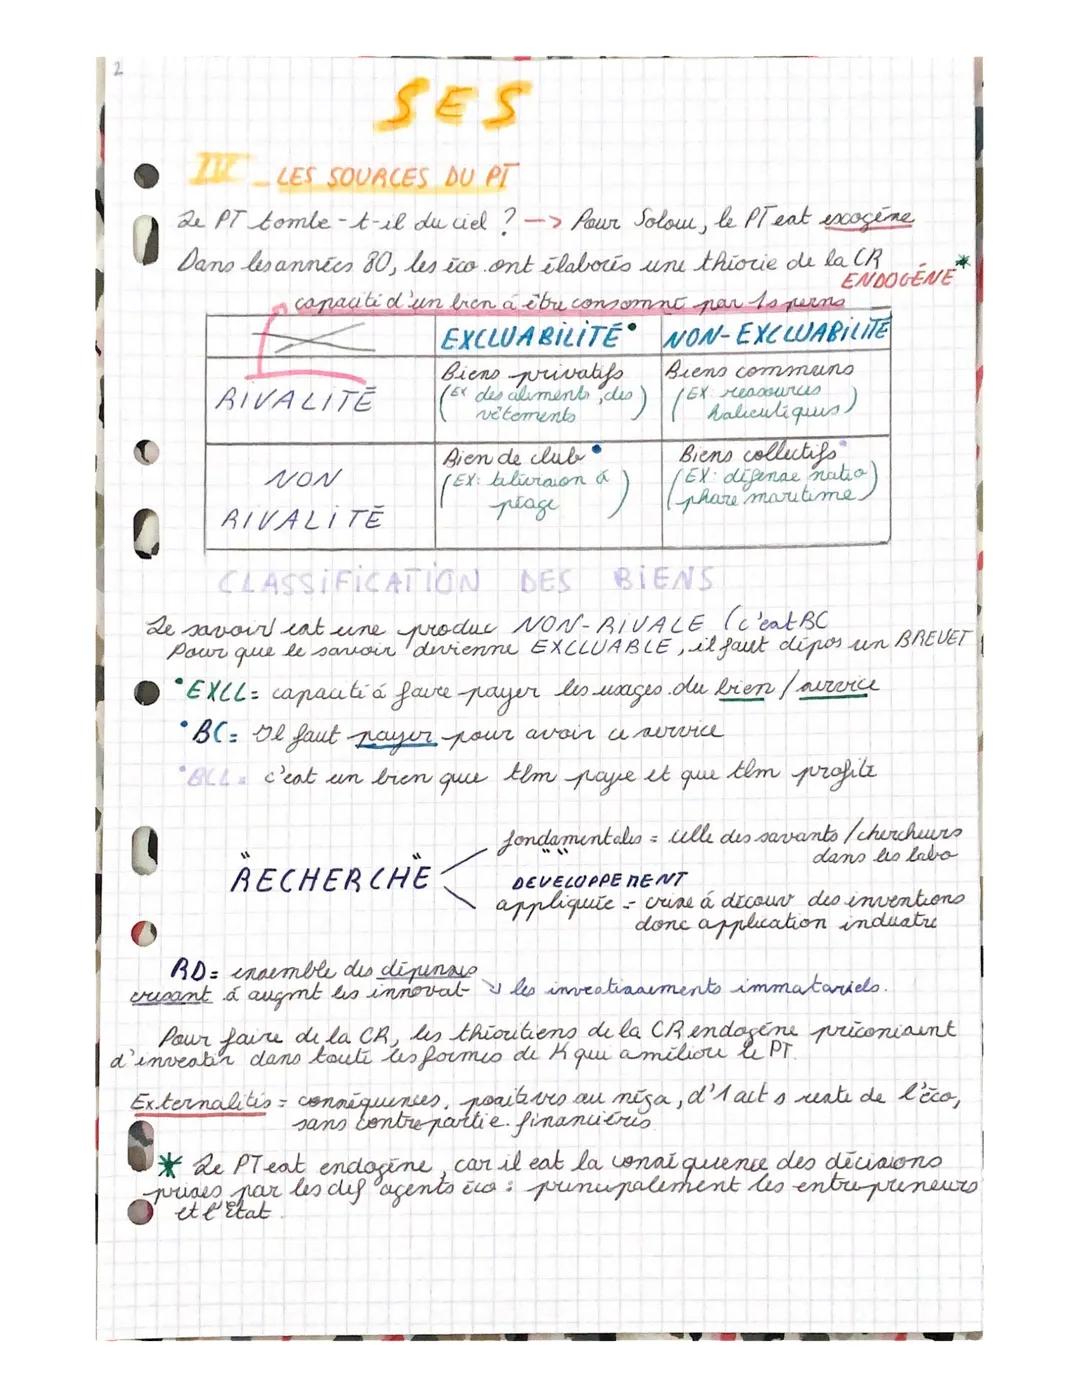 2
SES
III _ LES SOURCES DU PT
Le PT tombe-t-il du ciel ? --> Pour Solow, le PT est exogène
Dans les années 80, les éco ont élaborés une théorie de la CR
ENDOGÉNE *
capacité d'un bien à être consommé par 1s perns
EXCLUABILITÉ • NON-EXCLUABILITÉ
RIVALITÉ
Biens privatifs
(EX des aliments, des
vêtements)
Biens communs
(EX: ressources
halieutiques)
NON
RIVALITÉ
Bien de club •
(EX: télévision à
péage)
Biens collectifs •
(EX: défense natio
phare maritime)
CLASSIFICATION DES BIENS
Le savoir est une produc NON-RIVALE (c'est BC
Pour que le savoir devienne EXCLUABLE, il faut dépos un BREVET
• EXCL= capacité à faire payer les usages du bien / service
• BC= Il faut payer pour avoir ce service
• BCL= c'est un bien que tlm paye et que tlm profite
fondamentales = celle des savants / chercheurs
dans les labo
"RECHERCHE"
" " DEVELOPPEMENT
appliquée = crise à découv des inventions
donc application industr
RD= ensemble des dépenses
crisant à augmt les innovat- ↘ les investissements immatariels.
Pour faire de la CR, les théoritiens de la CR endogène préconisent
d'investir dans toute les formes de K qui améliore le PT.
Externalités = conséquences, positives au néga, d'1 act s reste de l'éco,
sans contrepartie financiéris
* Le PT est endogène, car il est la conséquence des décisions
prises par les dif agents éco : principalement les entrepreneurs
et l'Etat.